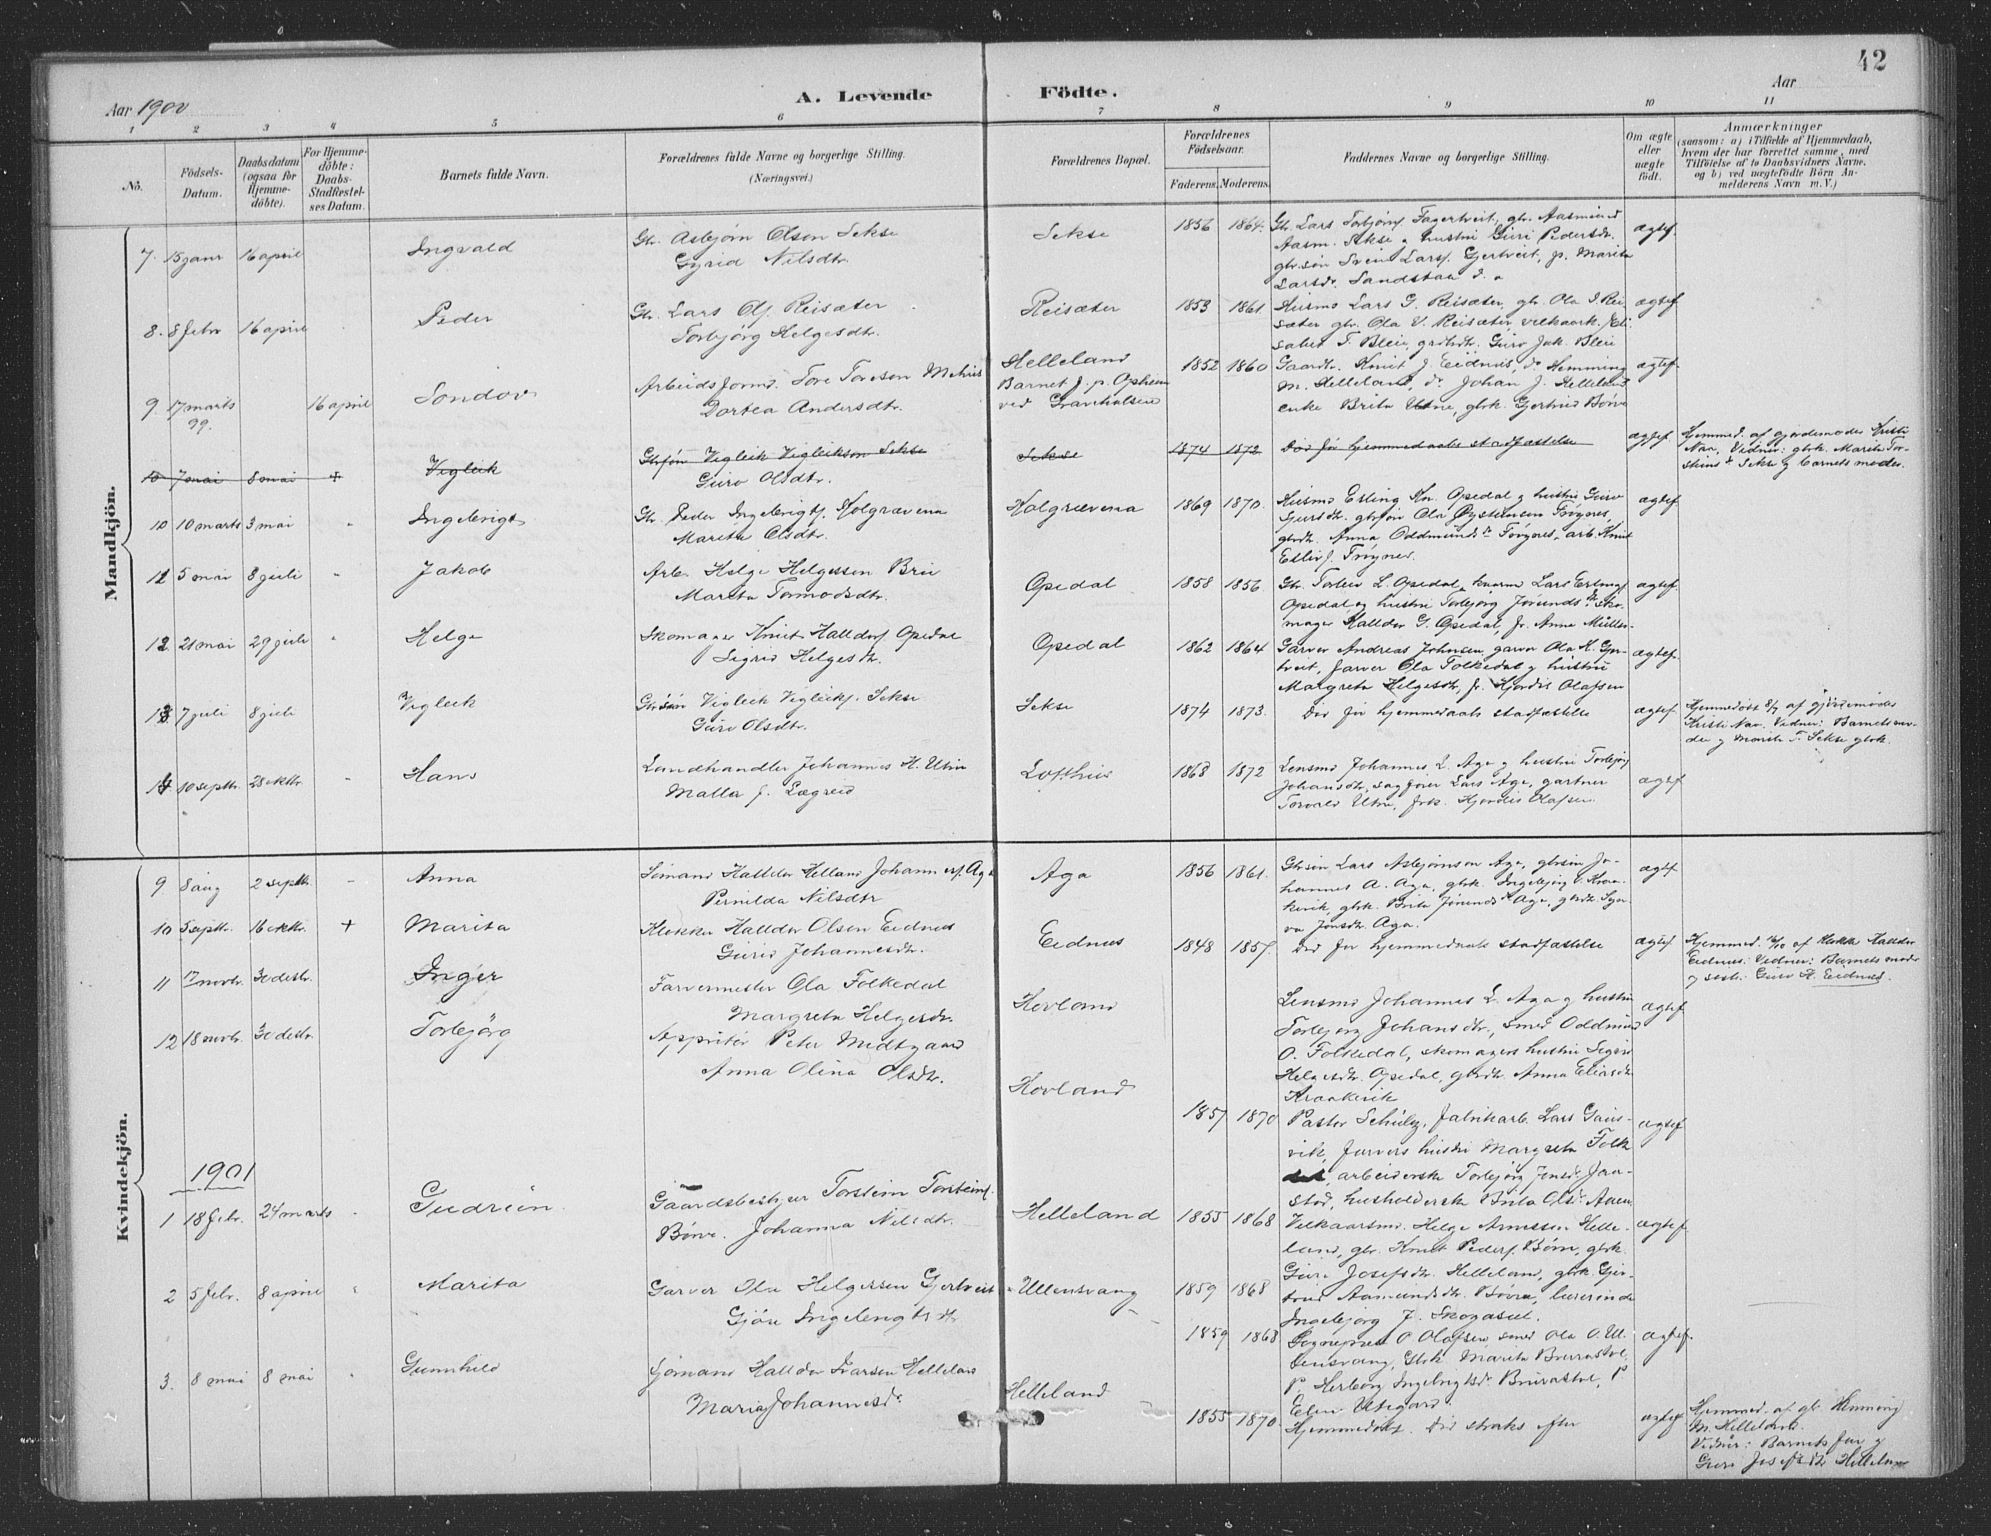 42
Aar 1900
A. Levende Födte.
Aar
1 2 3 4 5 6 7 8 9 10 11
No.
Födsels-Datum.
Daabsdatum (ogsaa for Hjemmedöbte).
For Hjemmedöbte: Daabs-Stadfæstelses Datum.
Barnets fulde Navn.
Forældrenes fulde Navne og borgerlige Stilling.
(Næringsvei.)
Forældrenes Bopæl.
Forældrenes Födselsaar.
Faderens. Moderens.
Faddernes Navne og borgerlige Stilling.
Om ægte eller uægte födt.
Anmærkninger
(saasom: a) i Tilfælde af Hjemmedaab,
hvem der har forrettet samme, med
Tilföielse af to Daabsvidners Navne,
og b) ved uægtefödte Börn Anmelderens Navn m. V.)
Mandkjön.
7. 15 januar 16 april Ingvald Gbr. Asbjørn Olson Sekse
Gyrid Nilsdtr. Sekse 1856 1864. Gbr. Lars Torbjørns. Fagertveit, gbr. Aasmund
Aasm. Sekse og hustru Guri Pedersdr.
gbr.søn Svein Larss. Gjertveit, p. Marita
Larsdr. Sandstaa ægtef.
8. 8 febr 16 april Peder Gbr. Lars Ols. Reisæter
Torbjørg Helgesdtr. Reisæter 1853 1861 Husmd Lars G. Reisæter, gbr. Ola I. Reisæter
gbr. Ola V. Reisæter, vilkaark. Elisabed
T. Bleie, grdbdtr. Guro Jak. Bleie ægtef
9. 17 marts 99. 16 april Sondov Arbeidsformd. Tore Toreson Mehus
Dortea Andersdtr. Helleland
Barnet f. p. Opheim
ved Gravehalsen 1852 1860 Gaardbr. Knut J. Eidnes, do Hemming
M. Helleland, do Johan J. Helleland
enke Brita Utne, gbrk. Gjertrud Børve ægtef.
10 7 mai 8 mai + Vigleik Gbrsøn Vigleik Vigleikson Sekse
Guro Olsdtr. Sekse 1874 1872 Død før hjemmedaabs stadfæstelse ægtef Hjemmed. af gjordemoder Kristi
Naa, Vidner: gbrk. Marita Torsteinsdr. Sekse og barnets moder.
10 10 marts 3 mai " Ingebrigt Gbr. Peder Ingebrigts. Holgrævena
Marita Olsdtr. Holgrævena 1869 1870. Husmd Erling Kn. Opedal og hustru Guro
Sjursdtr. gbrsøn Ola Øysteinsen Frøynes,
gbrdtr. Anna Oddmundsdr. Frøynes, arb. Knut
Ellivs. Frøynes. ægtef
11 5 mai 8 juli " Jakob Arb. Helge Helgessen Brie
Marita Tormodsdtr. Opedal 1858 1856 Gbr. Torleiv L. Opedal, kaarmd Lars Erlings.
Opedal og hustru Torbjørg Jørundsdtr. Skomager
Halldor G. Opedal, fr. Anne Müller. ægtef.
12 21 mai 29 juli " Helge Skomager Knut Halldors. Opedal
Sigrid Helgesdtr. Opedal 1862 1864 Garver Andreas Johnsen, garver Ola H. Gjertveit,
farver Ola Folkedal og hustru
Margreta Helgesdtr, fr. Hjørdis Olafsen ægtef.
13 7 juli 8 juli Vigleik Gbrsøn Vigleik Vigleiks. Sekse
Guro Olsdtr. Sekse 1874 1873. Død før hjemmedaabs stadfæstelse ægtef. Hjemmedøbt 8/7 af gjordemoder
Kristi Naa, Vidner: Barnets moder
og Marita T. Sekse gbrk.
14 10 septbr. 28 oktbr. " Hans Landhandler Johannes H. Utne
Malla f. Lægreid Lofthus 1868 1872 Lensmd Johannes L. Aga og hustru Torbjørg
Johansdtr, sagfører Lars Aga, gartner
Torvald Utne, frk. Hjørdis Olafsen. ægtef
Kvindekjön.
9 8 aug 2 septbr. " Anna Sömand Halldor Helland Johanness. Aga
Pernilda Nilsdtr Aga 1856 1861. Gbrsøn Lars Asbjørnson Aga, gbrsøn Johannes
A. Aga, gbrk. Ingebjørg V. Kraakevik,
gbrk. Brita Jørundsdr. Aga, gbrdtr. Syneva
Jonsdtr. Aga. ægtef
10 5 septbr. 16 oktbr. + Marita Klokker Halldor Olsen Eidnes
Gurid Johannesdtr. Eidnes 1848 1857. Død før hjemmedaabs stadfæstelse ægtef Hjemmed. 16/10 af klokker Halldor
Eidnes. Vidner: Barnets moder
og søst. Guro H. Eidnes.
11 17 novbr. 30 desbr. Inger Farvermester Ola Folkedal
Margreta Helgesdr. Hovland Lensmd Johannes L. Aga og hustru
Torbjørg Johansdtr., smed Oddmund
O. Folkedal, skomagers hustru Sigrid
Helgesdtr. Opedal, gbrdtr. Anna Eliasdtr
Kraakevik ægtef
12 18 novbr. 30 desbr. Torbjörg Appritör Peter Midtgaard
Anna Olina Olsdtr. Hovland 1857 1870 Pastor Schulz, fabrikarb. Lars Gausvik,
farvers hustru Margreta Folkedal,
arbeiderske Torbjørg Jensd. Jaastad,
husholderske Brita Olsdr. Aasen ægtef
1901
1 18 febr. 24 marts " Gudrun Gaardsbestyrer Torstein Torsteins.
Børve. Johanna Nilsdtr. Helleland 1855 1868 Vilkaarsmd. Helge Arnessen Helleland,
gbr. Knut Peders. Børve, gbrk.
Guri Josefsdtr. Helleland, gbrk. Gjertrud
Aamundsdtr. Børve, lærerinde
Ingebjørg J. Skogasel. ægtef
2 5 febr. 8 april " Marita Garver Ola Helgessen Gjertveit
Gjøa Ingebrigtsdtr Ullensvang 1859 1868
1859 1868 Sogneprest O Olafsen, smed Ola O. Ullensvang,
Gbrk Marita Buraastøl,
P. Herborg Ingebrigtsdr. Buraastøl, P
Elen Utegaard. ægtef.
3. 8 mai 8 mai " Gunnhild Sjömand Halldor Ivarsen Helleland
Maria Johannesdr. Helleland 1855 1870. Hjemmedøbt. Død straks efter ægtef Hjemmed. af gbr. Henning
M. Helleland.
Vidner: Barnets far og
Guri Josefsdtr Helleland